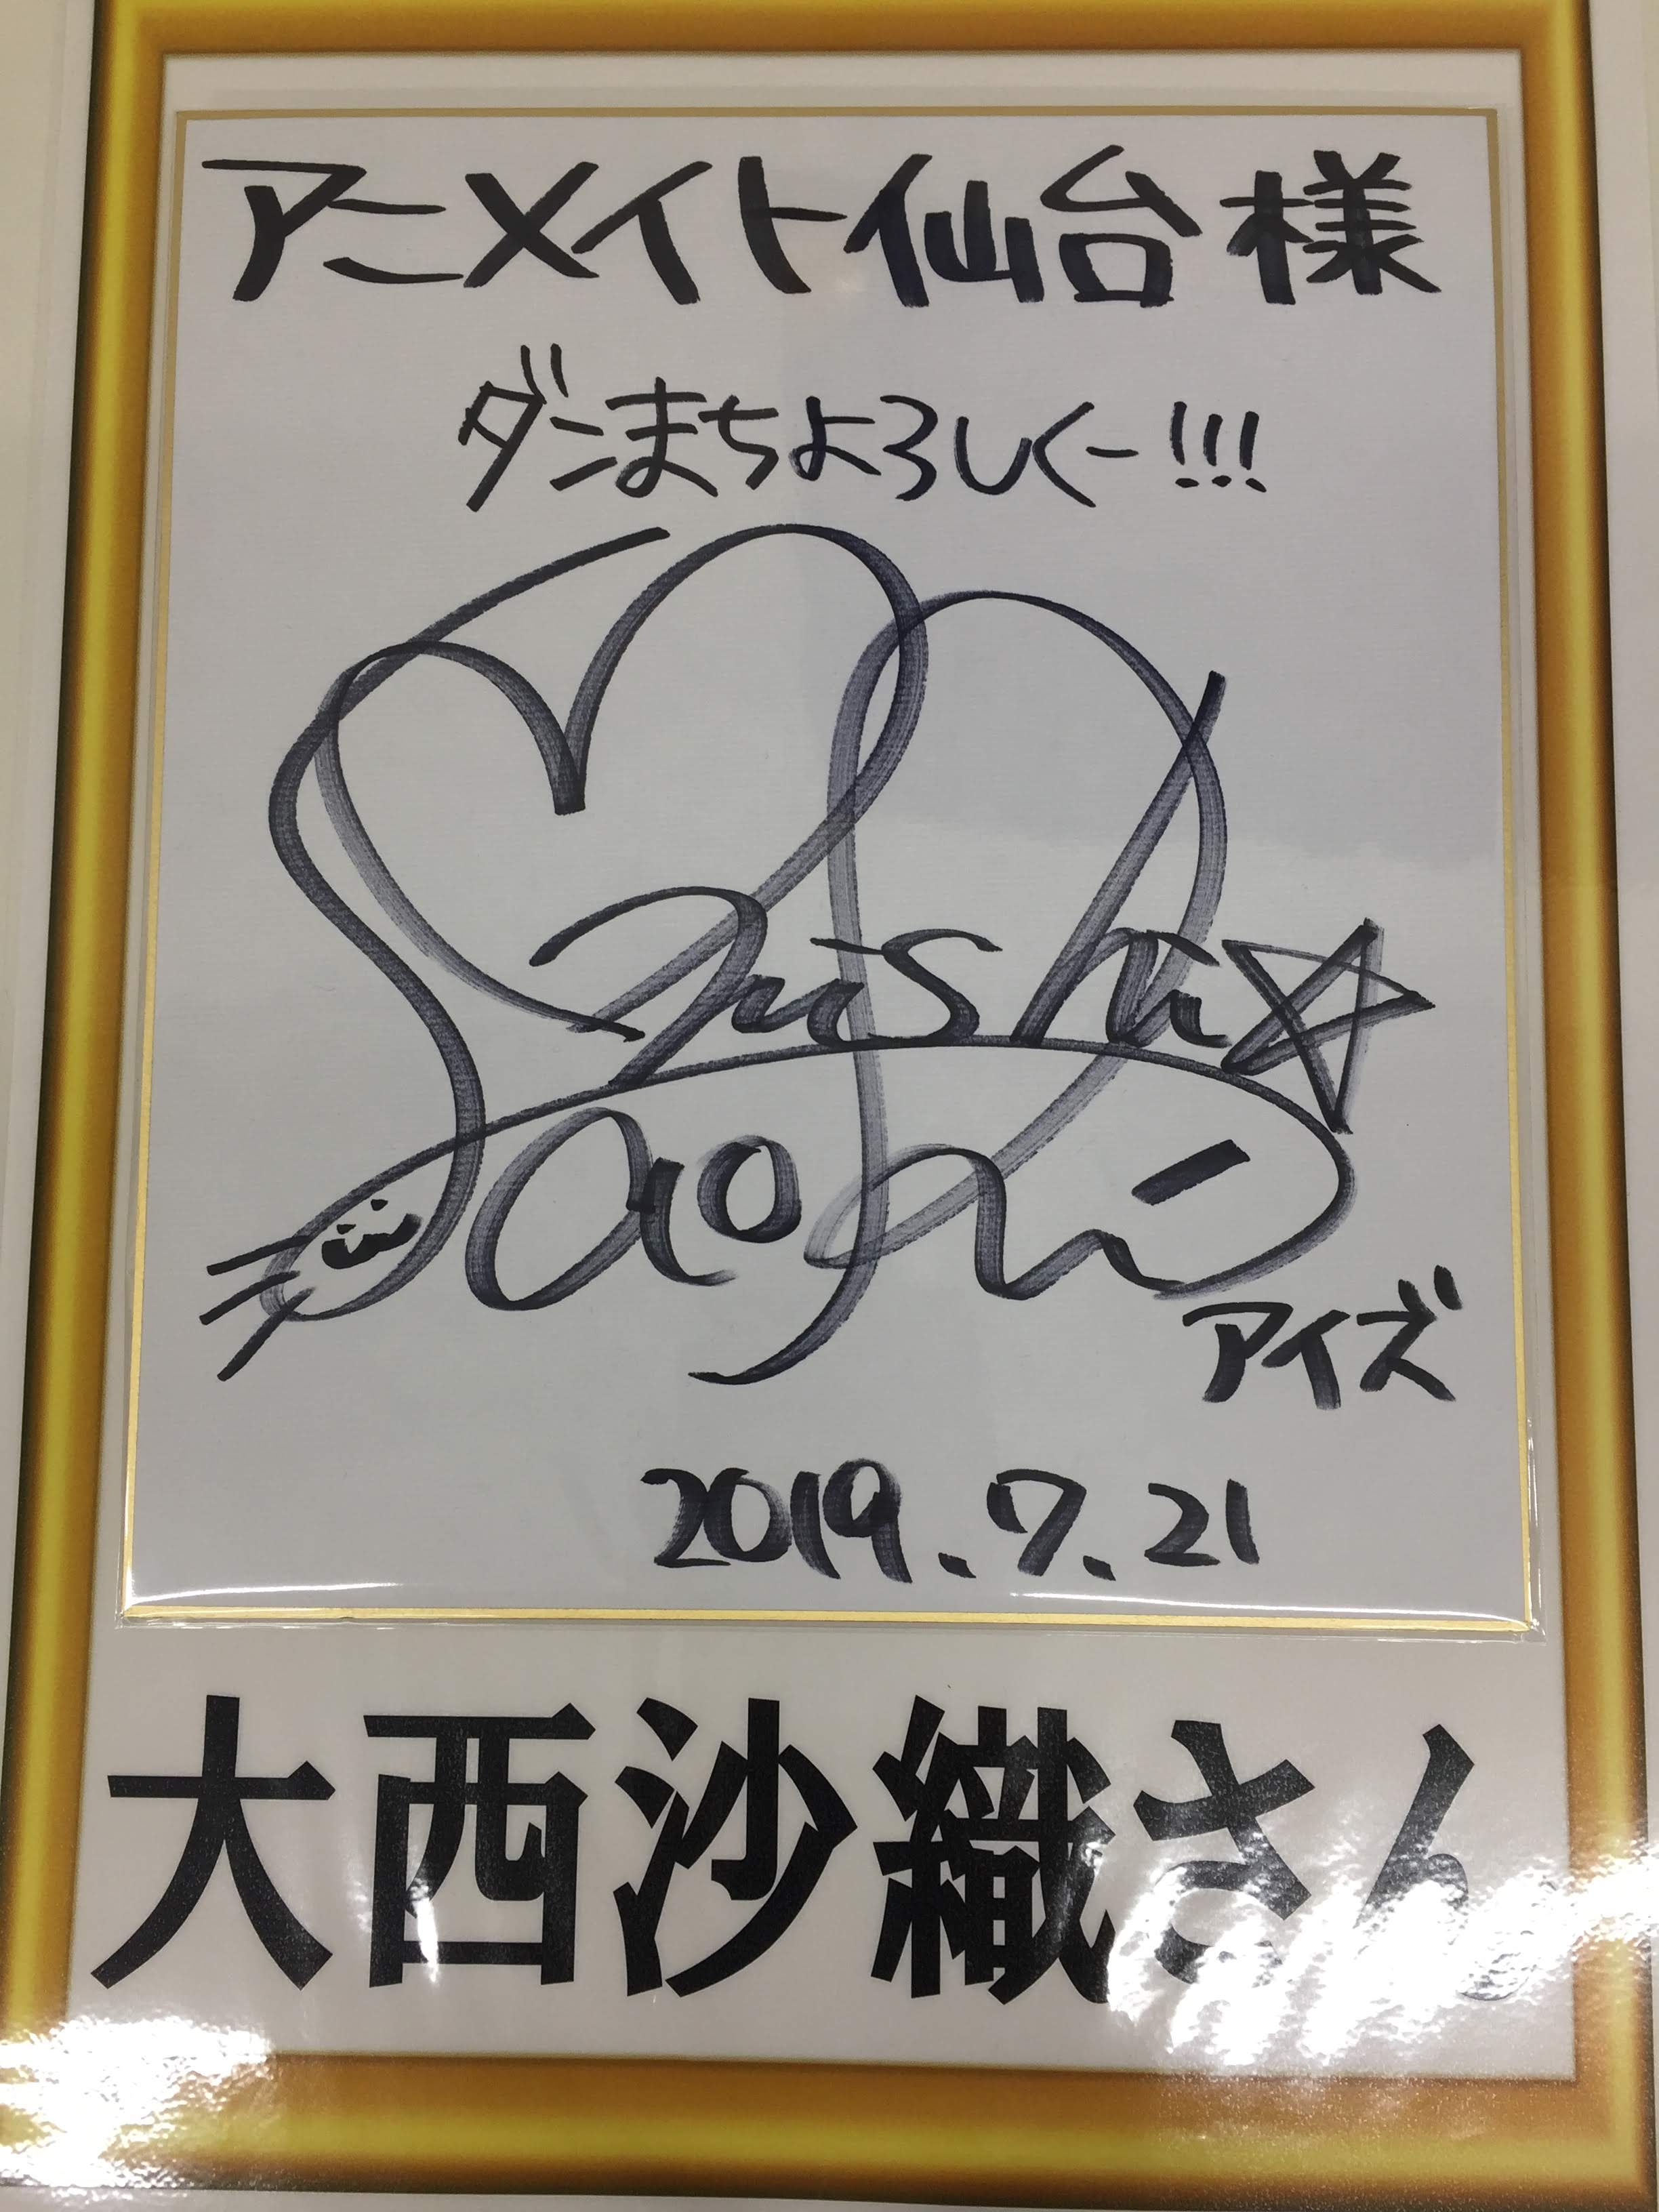 アニメイト仙台様
ダンまちよろしくー!!!
Ohnishi
Saori
アイズ
2019.7.21
大西沙織さん